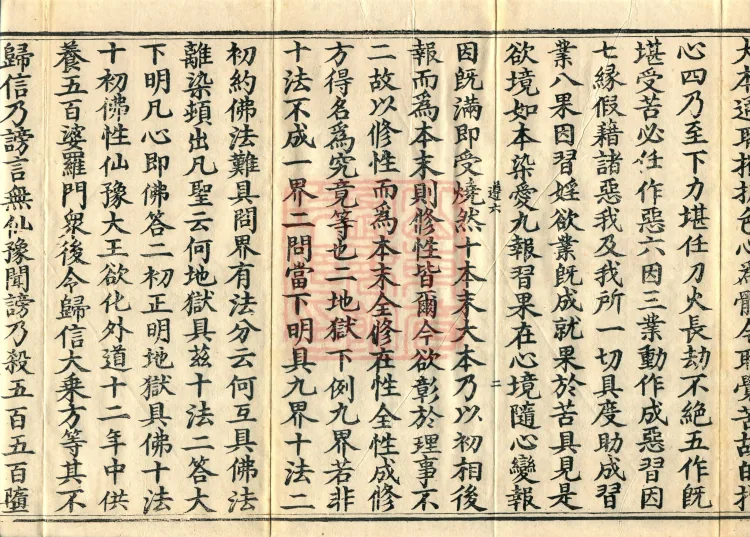 心四乃至下力堪任刀火長劫不絕五作旣
堪受苦必任作惡六因三業動作成惡習因
七緣假藉諸惡我及我所一切具度助成習
業八果因習婬欲業旣成就果於苦具見是
欲境如本染愛九報習果在心境隨心變報
遵六
二
因旣滿即受燒然十本末大本乃以初相後
報而爲本末則修性皆爾今欲彰於理事不
二故以修性而爲本末全修在性全性成修
方得名爲究竟等也二地獄下例九界若非
十法不成一界二問當下明具九界十法二
初約佛法難具問界有法分云何互具佛法
離染頓出凡聖云何地獄具茲十法二答大
下明凡心即佛答二初正明地獄具佛十法
十初佛性仙豫大王欲化外道十二年中供
養五百婆羅門衆後令歸信大乗方等其不
歸信乃謗言無仙豫聞謗乃殺五百五百墮